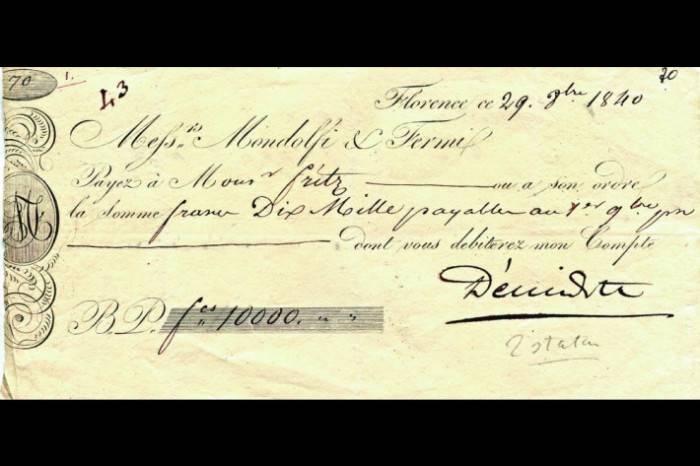 70
1.
43
70
Florence ce 29. 8bre 1840
Mess.rs Mondolfi & Fermi
Payez à Monsr fritz ou a son ordre
la somme francs Dix Mille payables au 1er 9bre
dont vous debiterez mon Compte
B.P. fcs 10000. " "